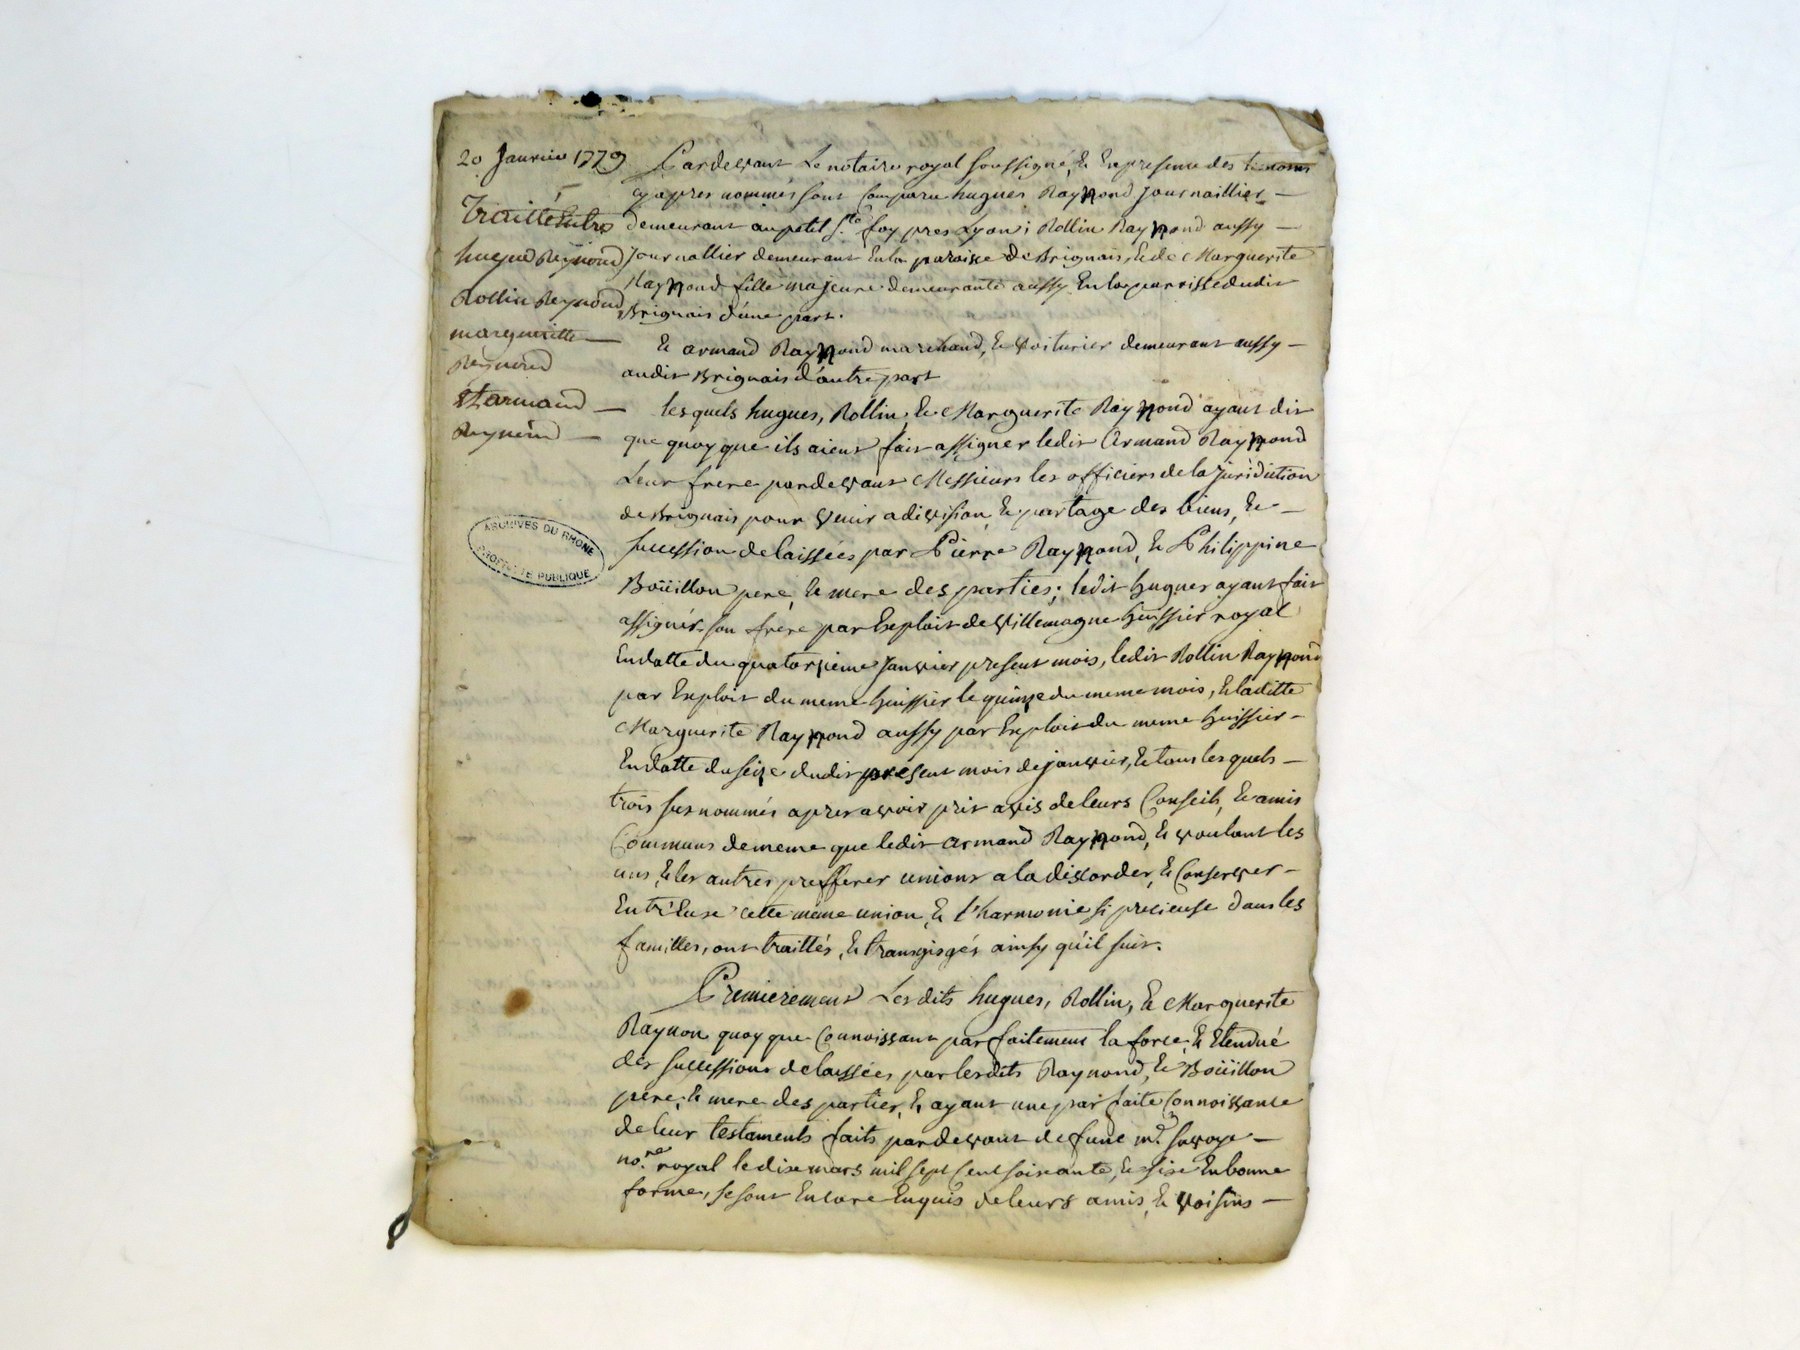 20 Janvier 1779
Traitté Entre
hugue Reynond
Rollin Reynond
margueritte —
Reynond
& armand —
Reynond —
ARCHIVES DU RHONE
PROPRIETE PUBLIQUE
Pardevant Le notaire royal soussigné, & En presence des temoins
cy apres nommés sont Comparu hugues Raynond Journaillier —
demeurant au petit Ste foy pres Lyon ; Rollin Raynond aussy —
Journallier demeurant En la paroisse de Brignais, & de Marguerite
Raynond fille majeure demeurante aussy En la parroisse dudit
Brignais d'une part.
& armand Raynond marchand, & voiturier demeurant aussy —
audit Brignais d'autre part
lesquels hugues, Rollin, & Marguerite Raynond ayant dit
que quoy que ils aient fait assigner ledit Armand Raynond
Leur frere pardevant Messieurs les officiers de la Juridiction
de Brignais pour venir a division, & partage des biens, & —
succession delaissées par Pierre Raynond, & Philippine
Boüillon pere, & mere des parties ; ledit hugues ayant fait
assigner son frere par Exploit de Villemagne huissier royal
En datte du quatorzieme Janvier present mois, ledit Rollin Raynond
par Exploit du meme huissier le quinze du meme mois, & laditte
Marguerite Raynond aussy par Exploit du meme huissier —
En datte du seize dudit present mois de janvier, & tous lesquels —
trois susnommés apres avoir prit avis de leurs Conseils, & amis
Communs de meme que ledit armand Raynond, & voulant les
uns, & les autres prefferer unions a la discorder, & Conserver —
Entr'Euse cette même union, & l'harmonie si precieuse dans les
familles, ont traittés, & transgisgés ainsy qu'il suit.
Premierement Les dits hugues, Rollin, & Marguerite
Raynon quoy que Connoissant parfaitement la force, & Etendué
des successions delaissées par lesdits Raynond, & Boüillon
pere, & mere des parties, & ayant une parfaite Connoissance
de leur testaments faits pardevant defunt me Savoye —
no.re royal le dix mars mil sept Cent soixante, & six En bonne
forme, se sont Encore Enquis de leurs amis, & voisins —